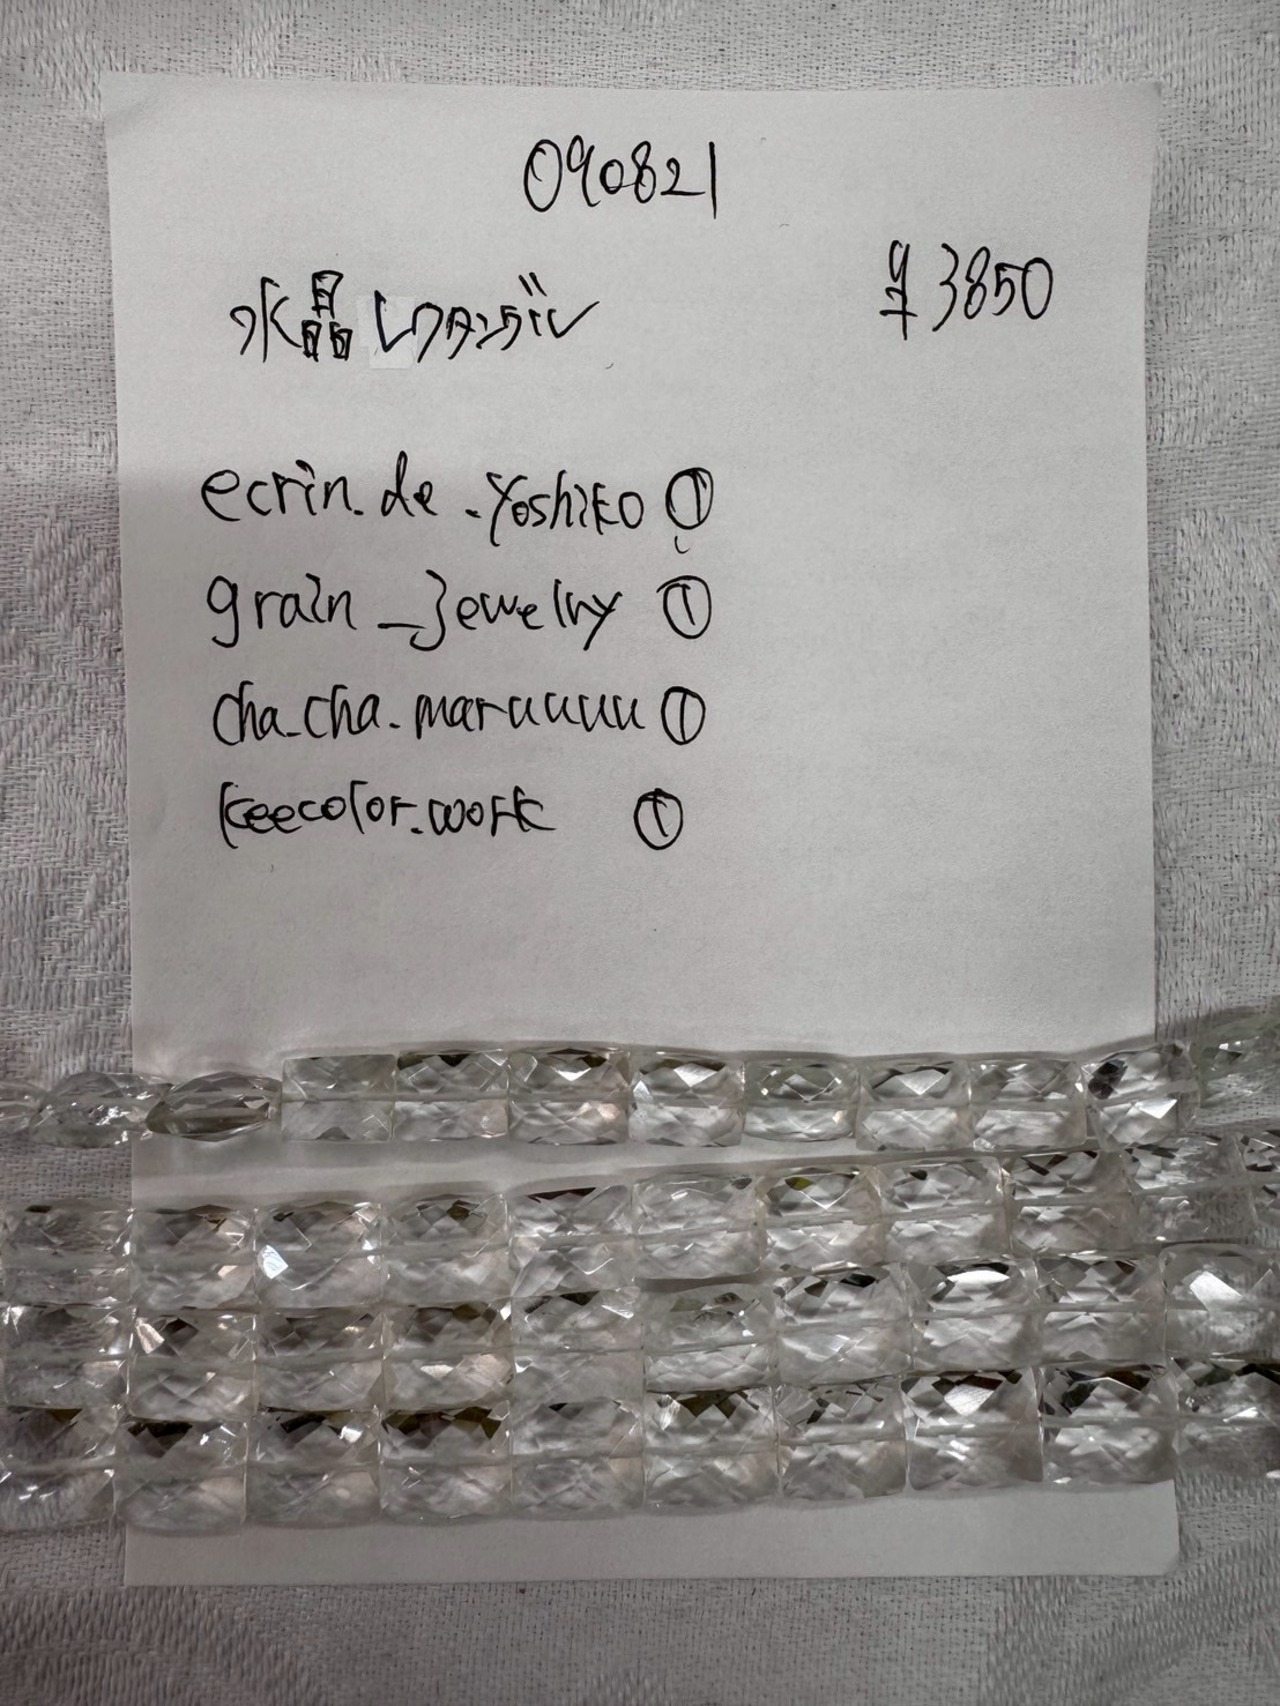 090821
水晶レクタングル
¥3850
ecrin.de.yoshiko ①
grain_jewelry ①
cha.cha.maruuuu ①
keecolor.work ①